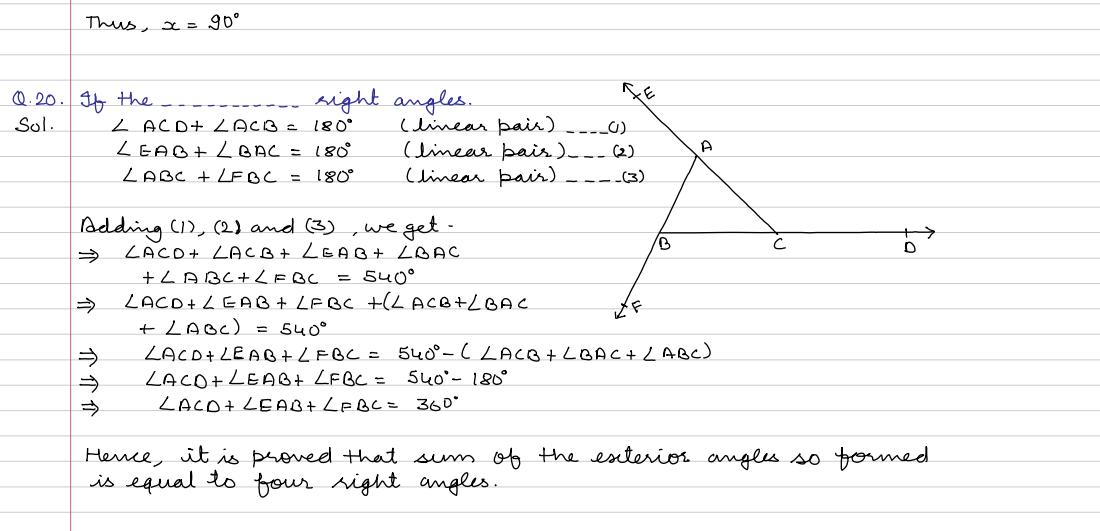 Thus, x = 90°
Q.20. If the ___________ right angles.
Sol. ∠ ACD + ∠ACB = 180° (linear pair) ____(1)
∠EAB + ∠BAC = 180° (linear pair)___ (2)
∠ABC + ∠FBC = 180° (linear pair) ____(3)
Adding (1), (2) and (3), we get -
⇒ ∠ACD + ∠ACB + ∠EAB + ∠BAC
+ ∠ABC + ∠FBC = 540°
⇒ ∠ACD + ∠EAB + ∠FBC + (∠ACB + ∠BAC
+ ∠ABC) = 540°
⇒ ∠ACD + ∠EAB + ∠FBC = 540° - (∠ACB + ∠BAC + ∠ABC)
⇒ ∠ACD + ∠EAB + ∠FBC = 540° - 180°
⇒ ∠ACD + ∠EAB + ∠FBC = 360°
Hence, it is proved that sum of the exterior angles so formed
is equal to four right angles.
E
A
B
C
D
F